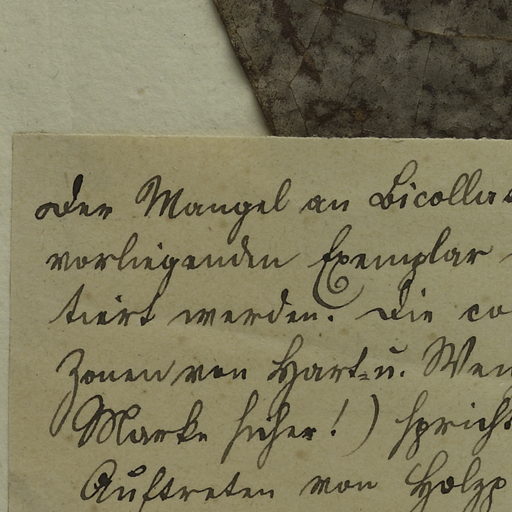 Der Mangel an Bicolla
vorliegenden Exemplar
tiert werden. Die co
Zonen von Hart- u. Wei
Marke sicher!) spricht
Auftreten von Holzp